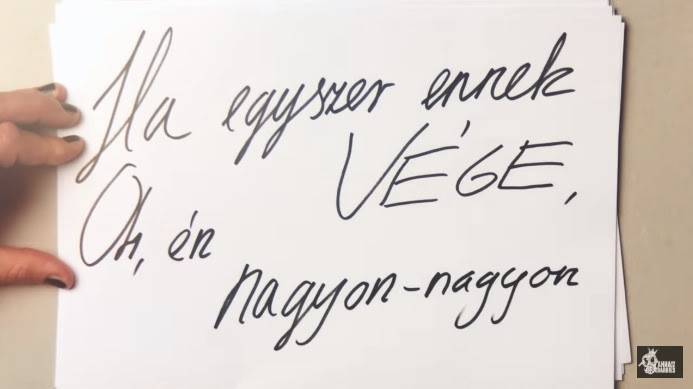 Ha egyszer ennek
VÉGE,
Óh, én
nagyon-nagyon